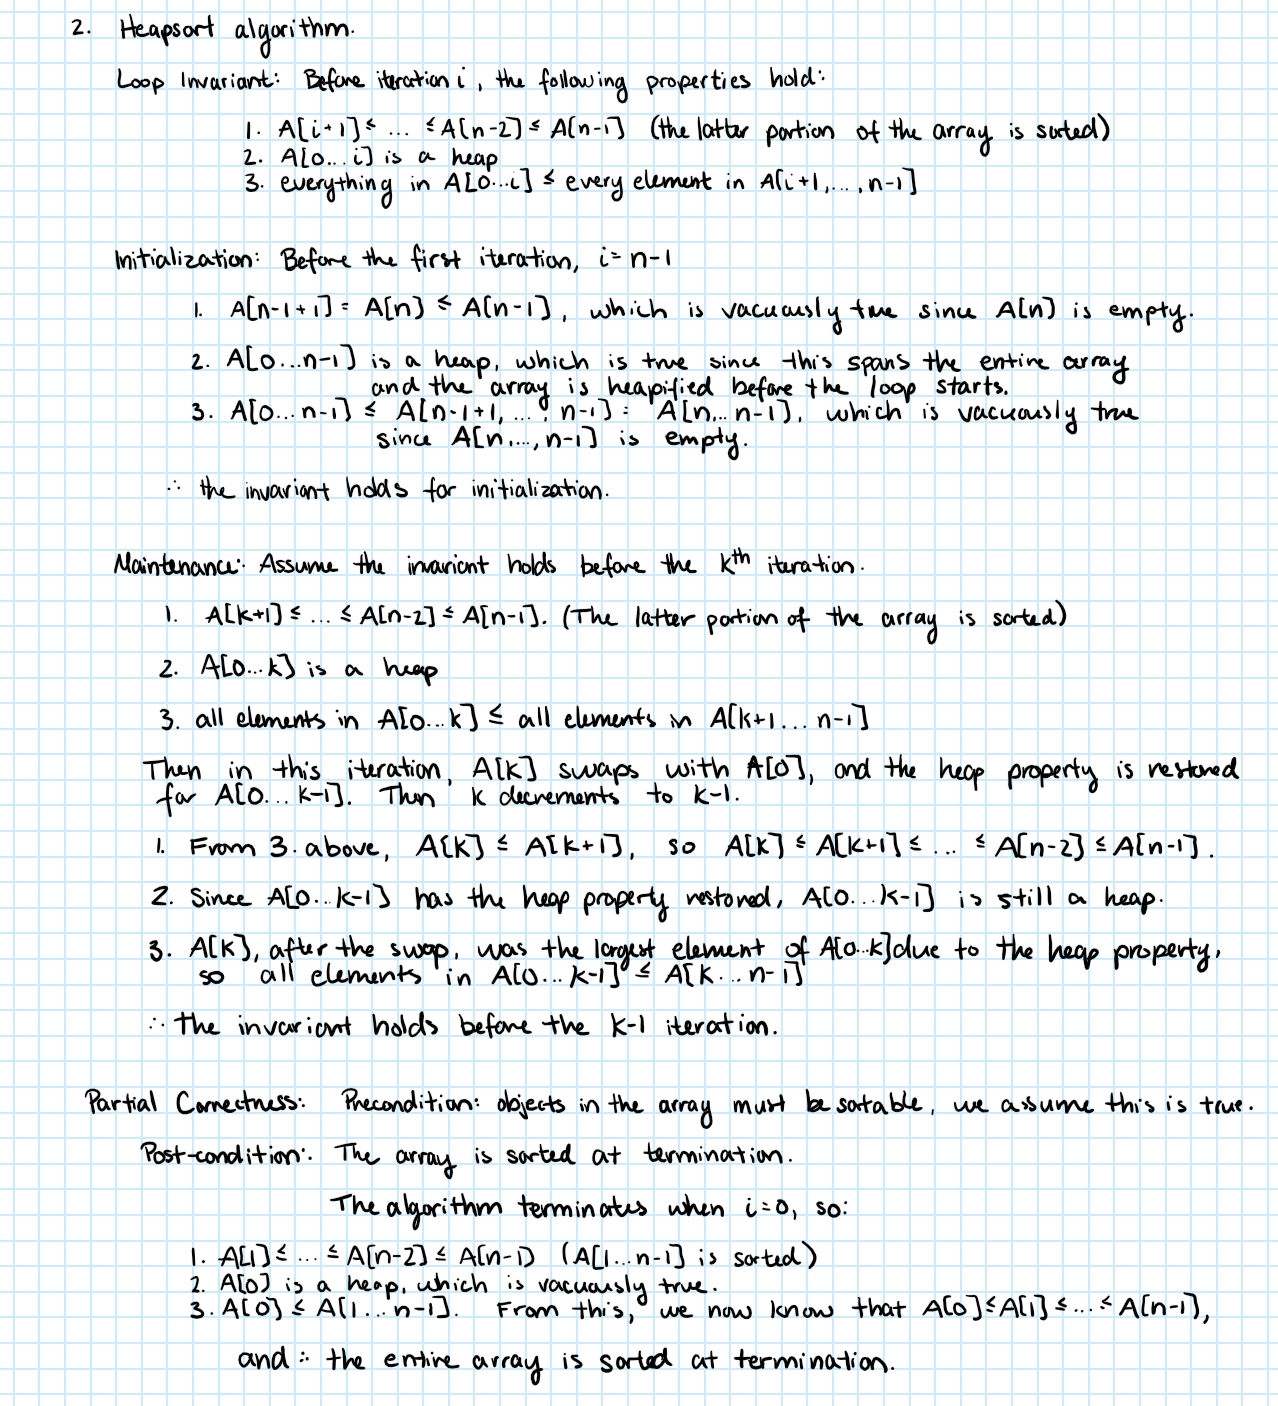 2. Heapsort algorithm.
Loop Invariant: Before iteration i, the following properties hold:
1. A[i+1] ≤ ... ≤ A[n-2] ≤ A[n-1] (the latter portion of the array is sorted)
2. A[0...i] is a heap
3. everything in A[0...i] ≤ every element in A[i+1,...,n-1]
Initialization: Before the first iteration, i = n-1
1. A[n-1+1] = A[n] ≤ A[n-1], which is vacuously true since A[n] is empty.
2. A[0...n-1] is a heap, which is true since this spans the entire array
and the array is heapified before the loop starts.
3. A[0...n-1] ≤ A[n-1+1, ..., n-1] = A[n,..n-1], which is vacuously true
since A[n,...,n-1] is empty.
∴ the invariant holds for initialization.
Maintenance: Assume the invariant holds before the kth iteration.
1. A[k+1] ≤ ... ≤ A[n-2] ≤ A[n-1]. (The latter portion of the array is sorted)
2. A[0...k] is a heap
3. all elements in A[0...k] ≤ all elements in A[k+1...n-1]
Then in this iteration, A[k] swaps with A[0], and the heap property is restored
for A[0...k-1]. Then k decrements to k-1.
1. From 3. above, A[k] ≤ A[k+1], so A[k] ≤ A[k+1] ≤ ... ≤ A[n-2] ≤ A[n-1].
2. Since A[0...k-1] has the heap property restored, A[0...k-1] is still a heap.
3. A[k], after the swap, was the largest element of A[0..k] due to the heap property,
so all elements in A[0...k-1] ≤ A[k...n-1]
∴ the invariant holds before the k-1 iteration.
Partial Correctness: Precondition: objects in the array must be sortable, we assume this is true.
Post-condition: The array is sorted at termination.
The algorithm terminates when i=0, so:
1. A[1] ≤ ... ≤ A[n-2] ≤ A[n-1] (A[1...n-1] is sorted)
2. A[0] is a heap, which is vacuously true.
3. A[0] ≤ A[1...n-1]. From this, we now know that A[0] ≤ A[1] ≤ ... ≤ A[n-1],
and ∴ the entire array is sorted at termination.